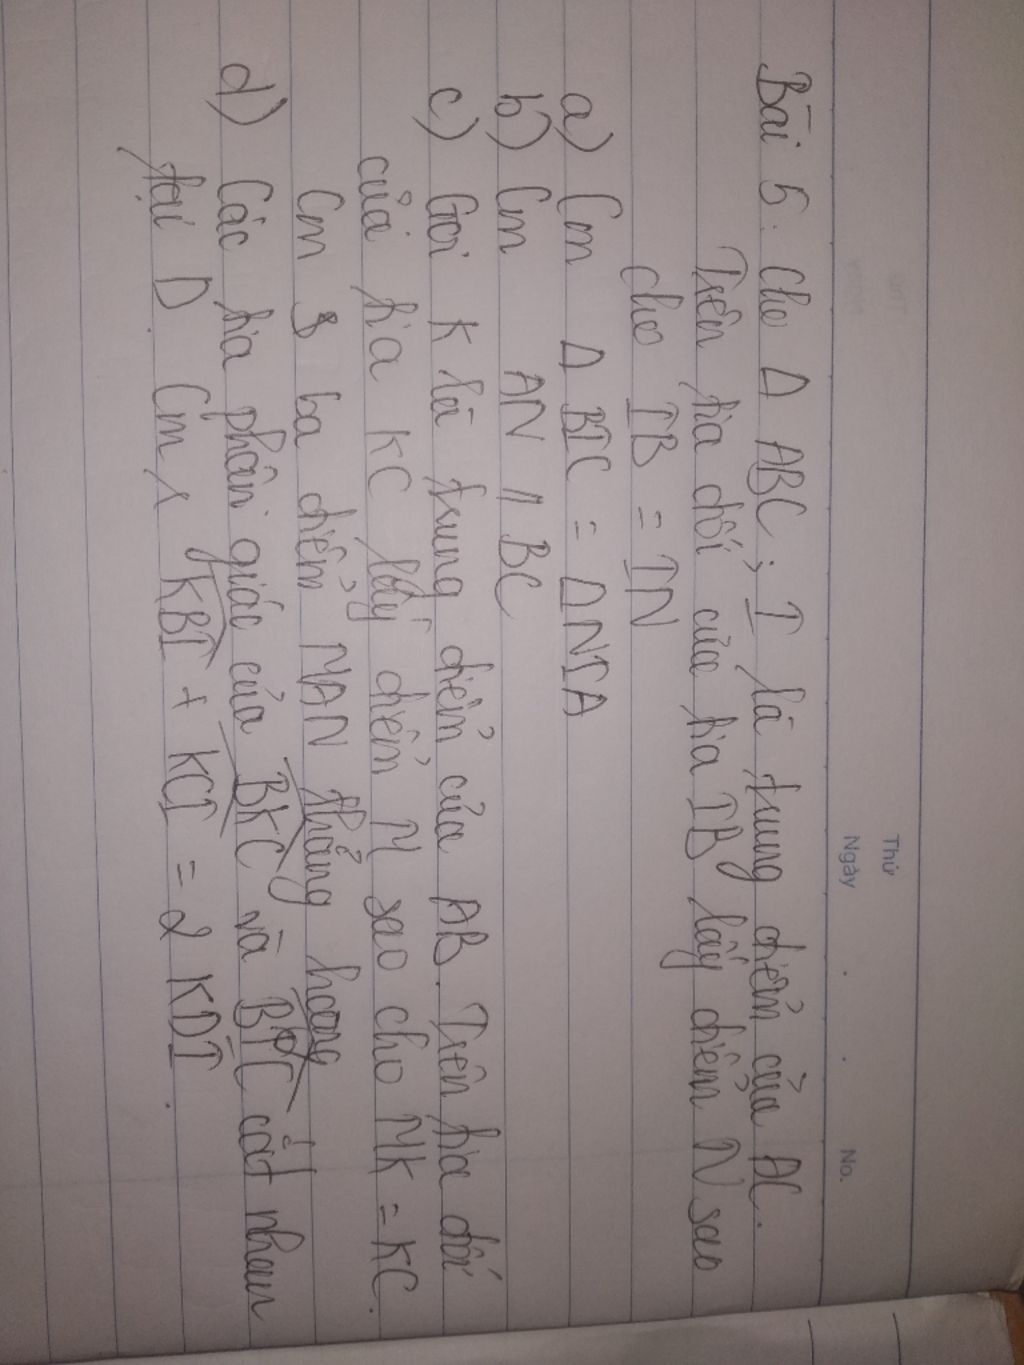 Thứ
Ngày . . No.
Bài 5. Cho Δ ABC ; I là trung điểm của AC.
Trên tia đối của tia IB lấy điểm N sao
cho IB = IN
a) Cm Δ BIC = ΔNIA
b) Cm AN // BC
c) Gọi K là trung điểm của AB. Trên tia đối
của tia KC lấy điểm M sao cho MK = KC.
Cm 3 ba điểm MAN thẳng hàng
d) Các tia phân giác của BKC và BIC cắt nhau
tại D. Cm KBI + KCI = 2 KDI